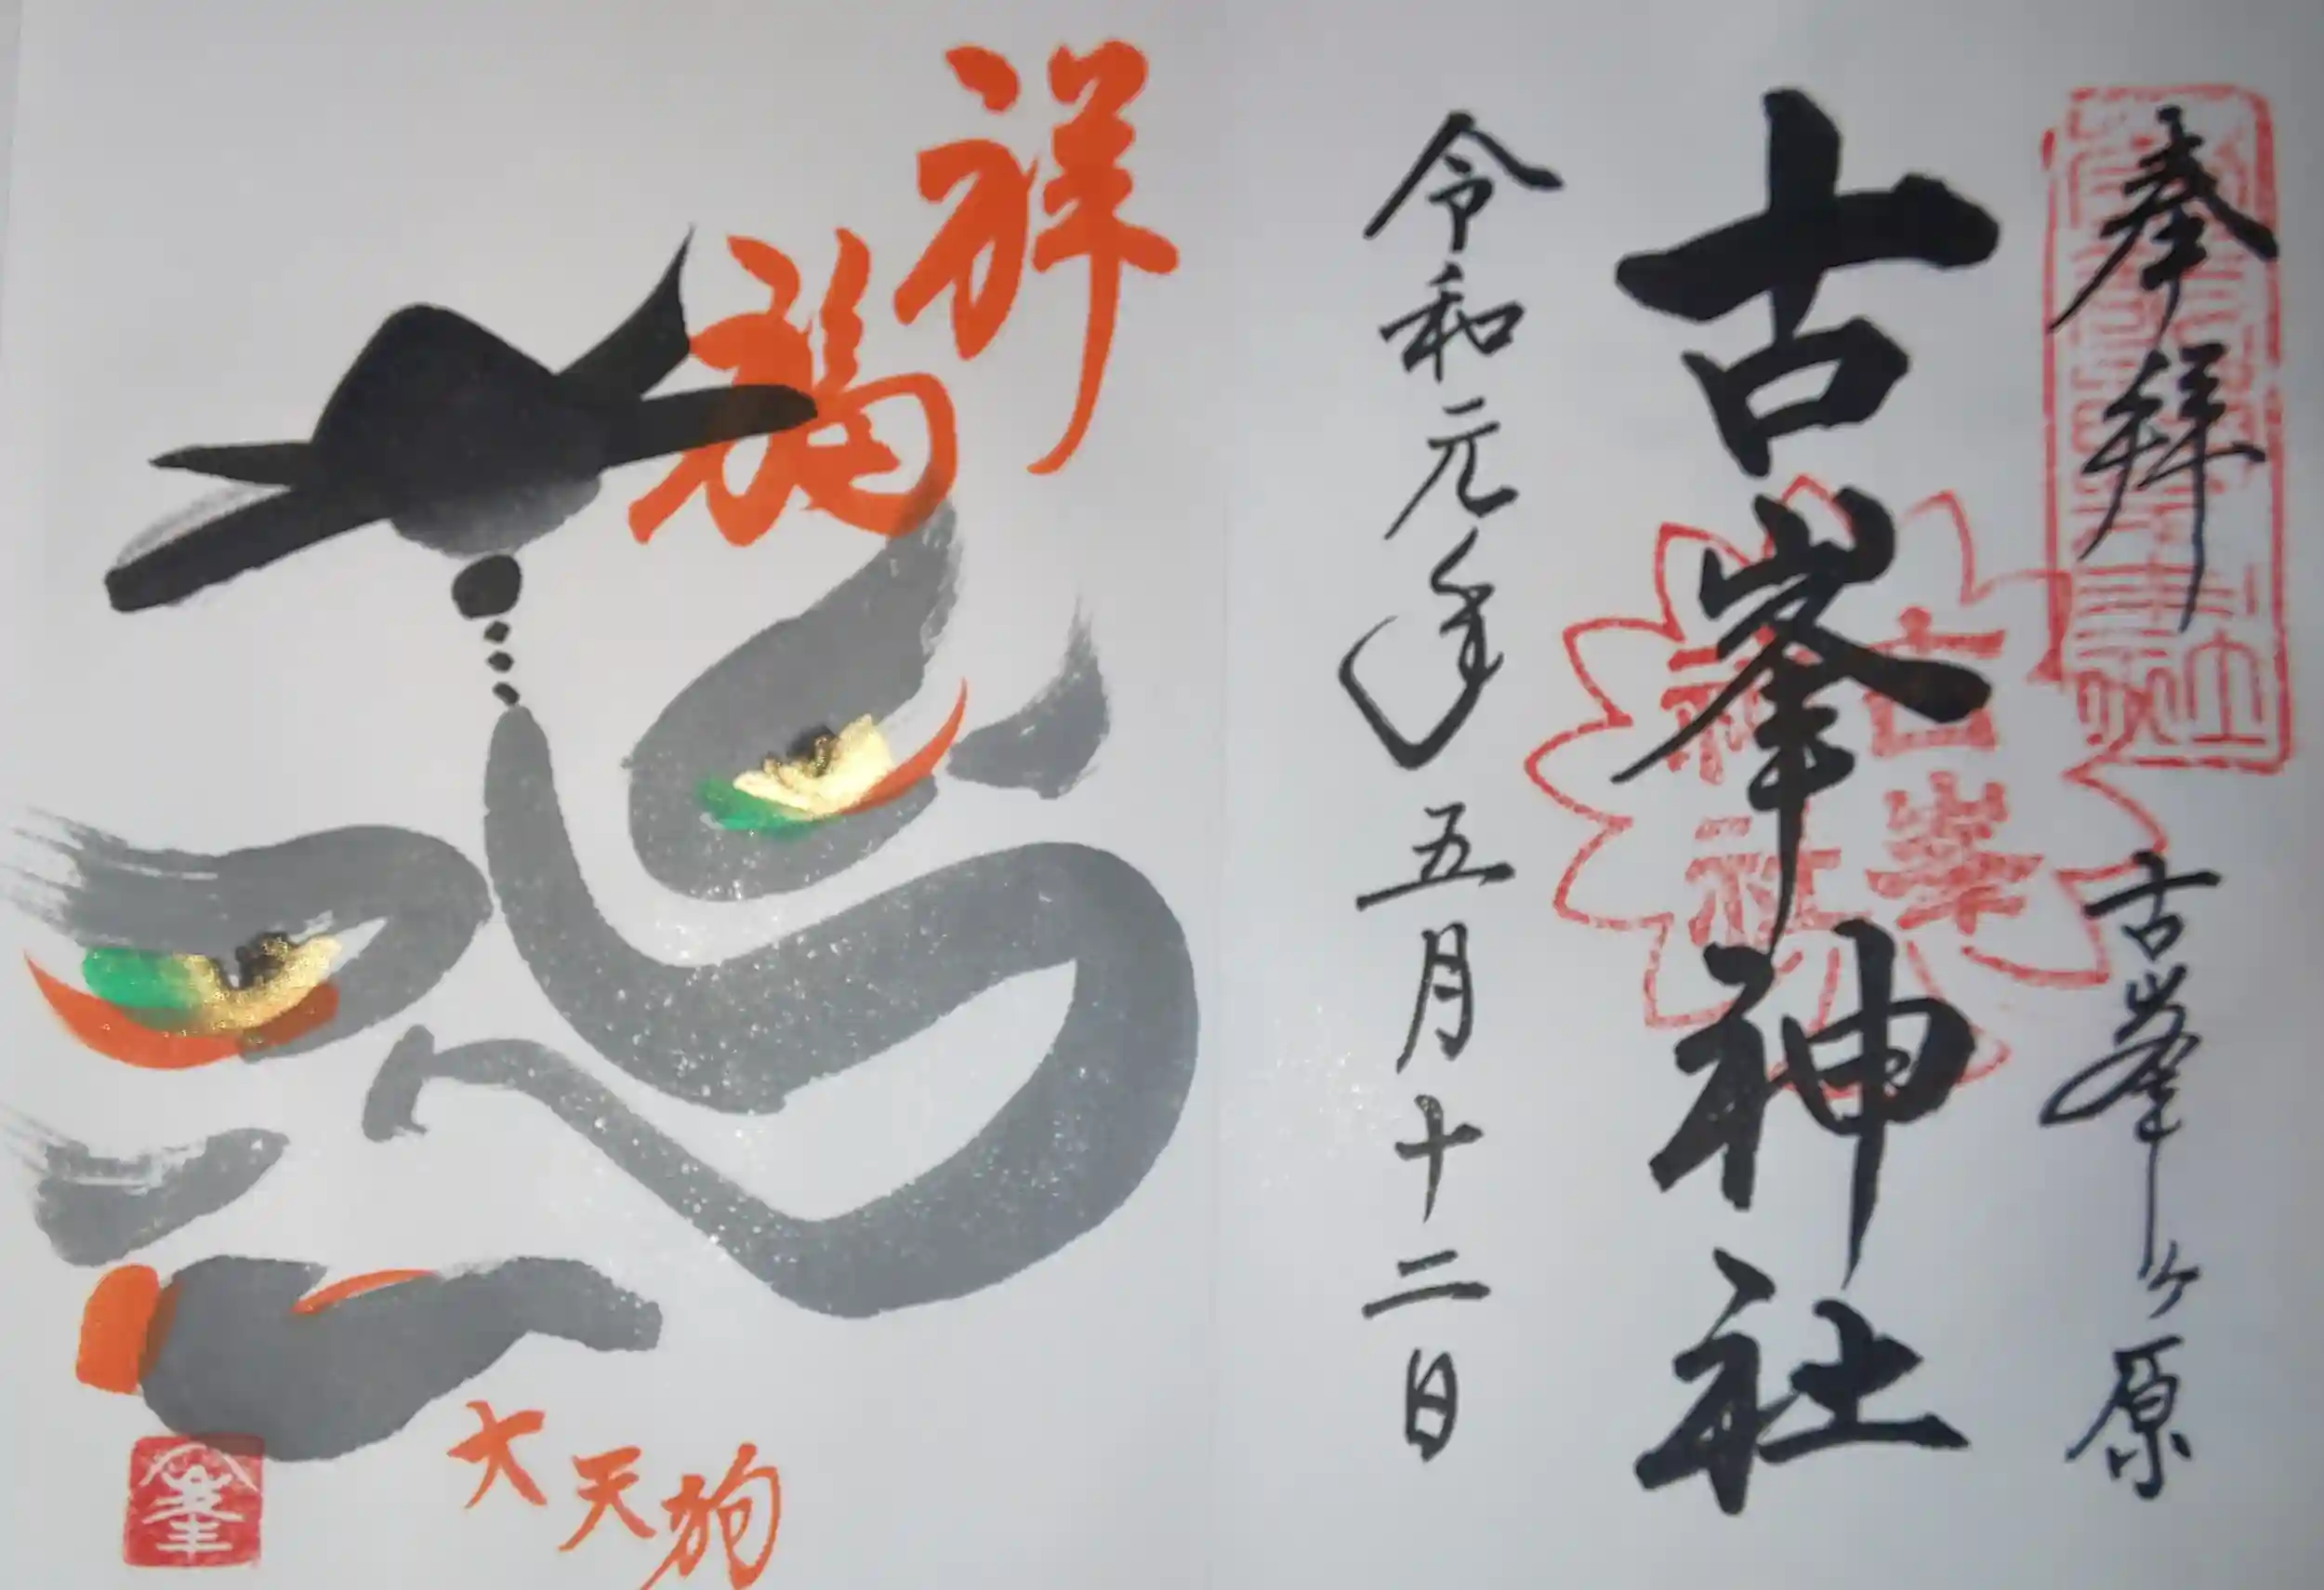 奉拝
古峯ヶ原
古峯神社
古峯神社
令和元年五月十二日
祥
福
大天狗
峯